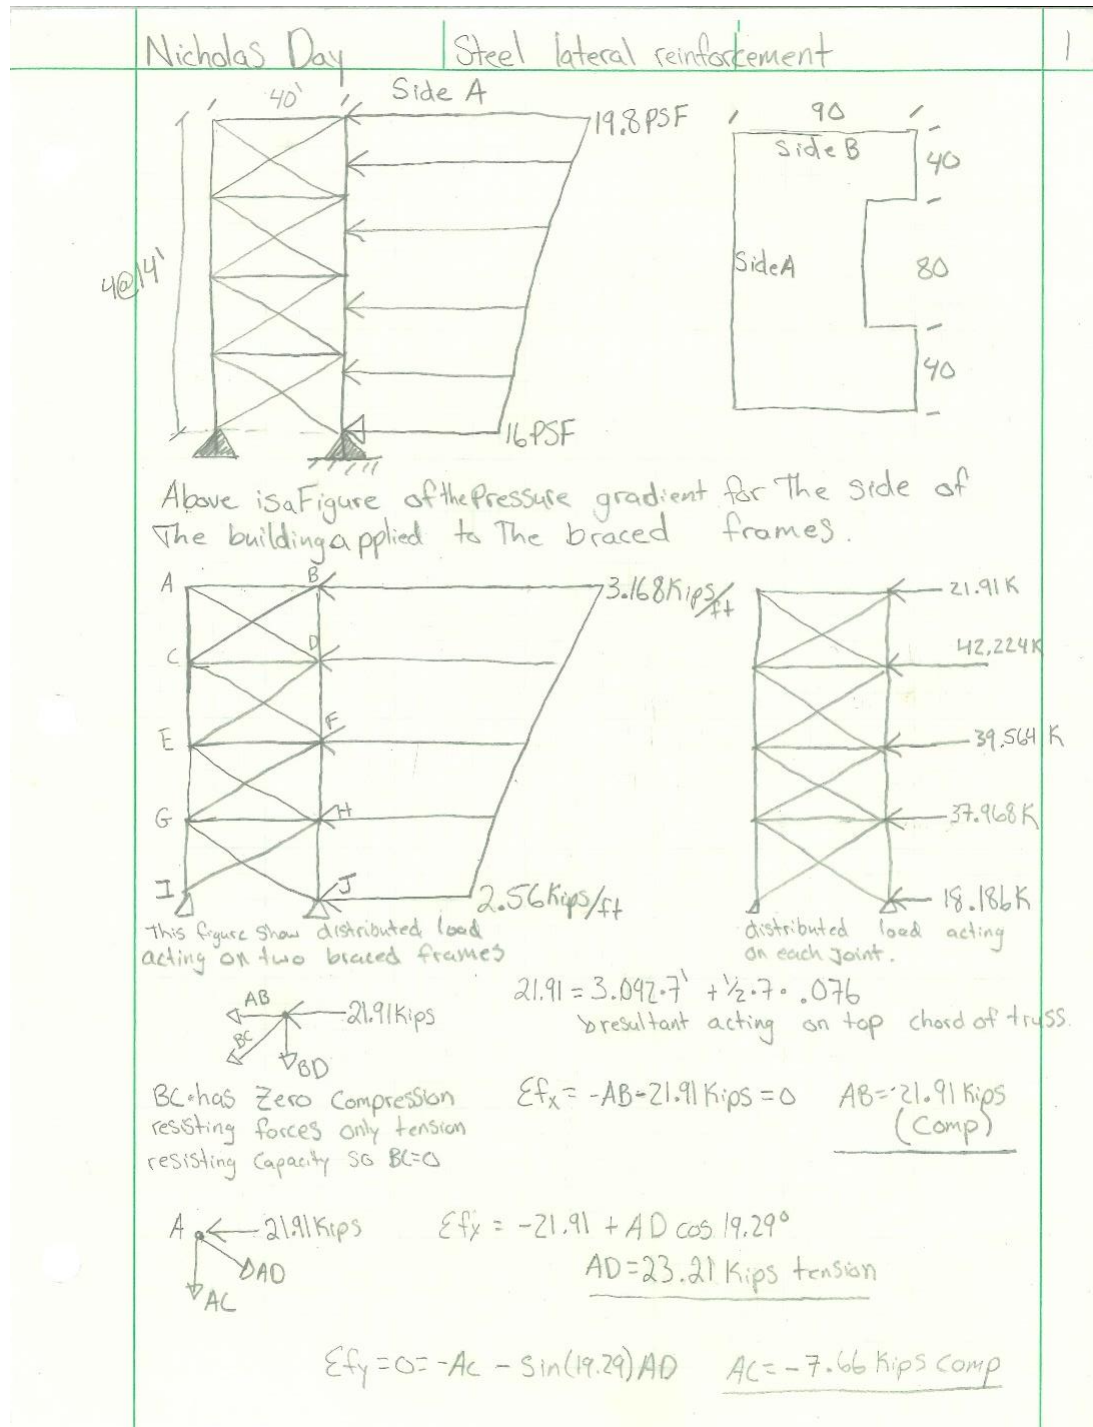 Nicholas Day
Steel lateral reinforcement
1
40'
Side A
19.8 PSF
4@14'
16 PSF
90
Side B
40
Side A
80
40
Above is a Figure of the Pressure gradient for The side of
The building applied to The braced frames.
A
B
3.168 Kips/ft
C
D
E
F
G
H
I
J
2.56 Kips/ft
21.91 K
42.224 K
39.564 K
37.968 K
18.186 K
This figure show distributed load
acting on two braced frames
distributed load acting
on each joint.
21.91 = 3.092·7' + 1/2·7·.076
resultant acting on top chord of truss.
AB
21.91 Kips
BC
BD
BC has Zero Compression
resisting forces only tension
resisting capacity so BC=0
Σfx = -AB-21.91 Kips = 0
AB = -21.91 Kips
(Comp)
A
21.91 Kips
AD
AC
Σfx = -21.91 + AD cos 19.29°
AD = 23.21 Kips tension
Σfy = 0 = -AC - Sin(19.29)AD
AC = -7.66 Kips comp